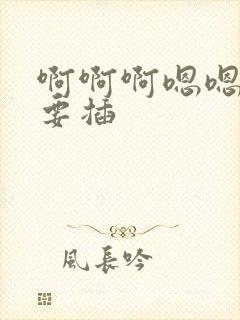 啊啊啊嗯嗯
要插
風長吟